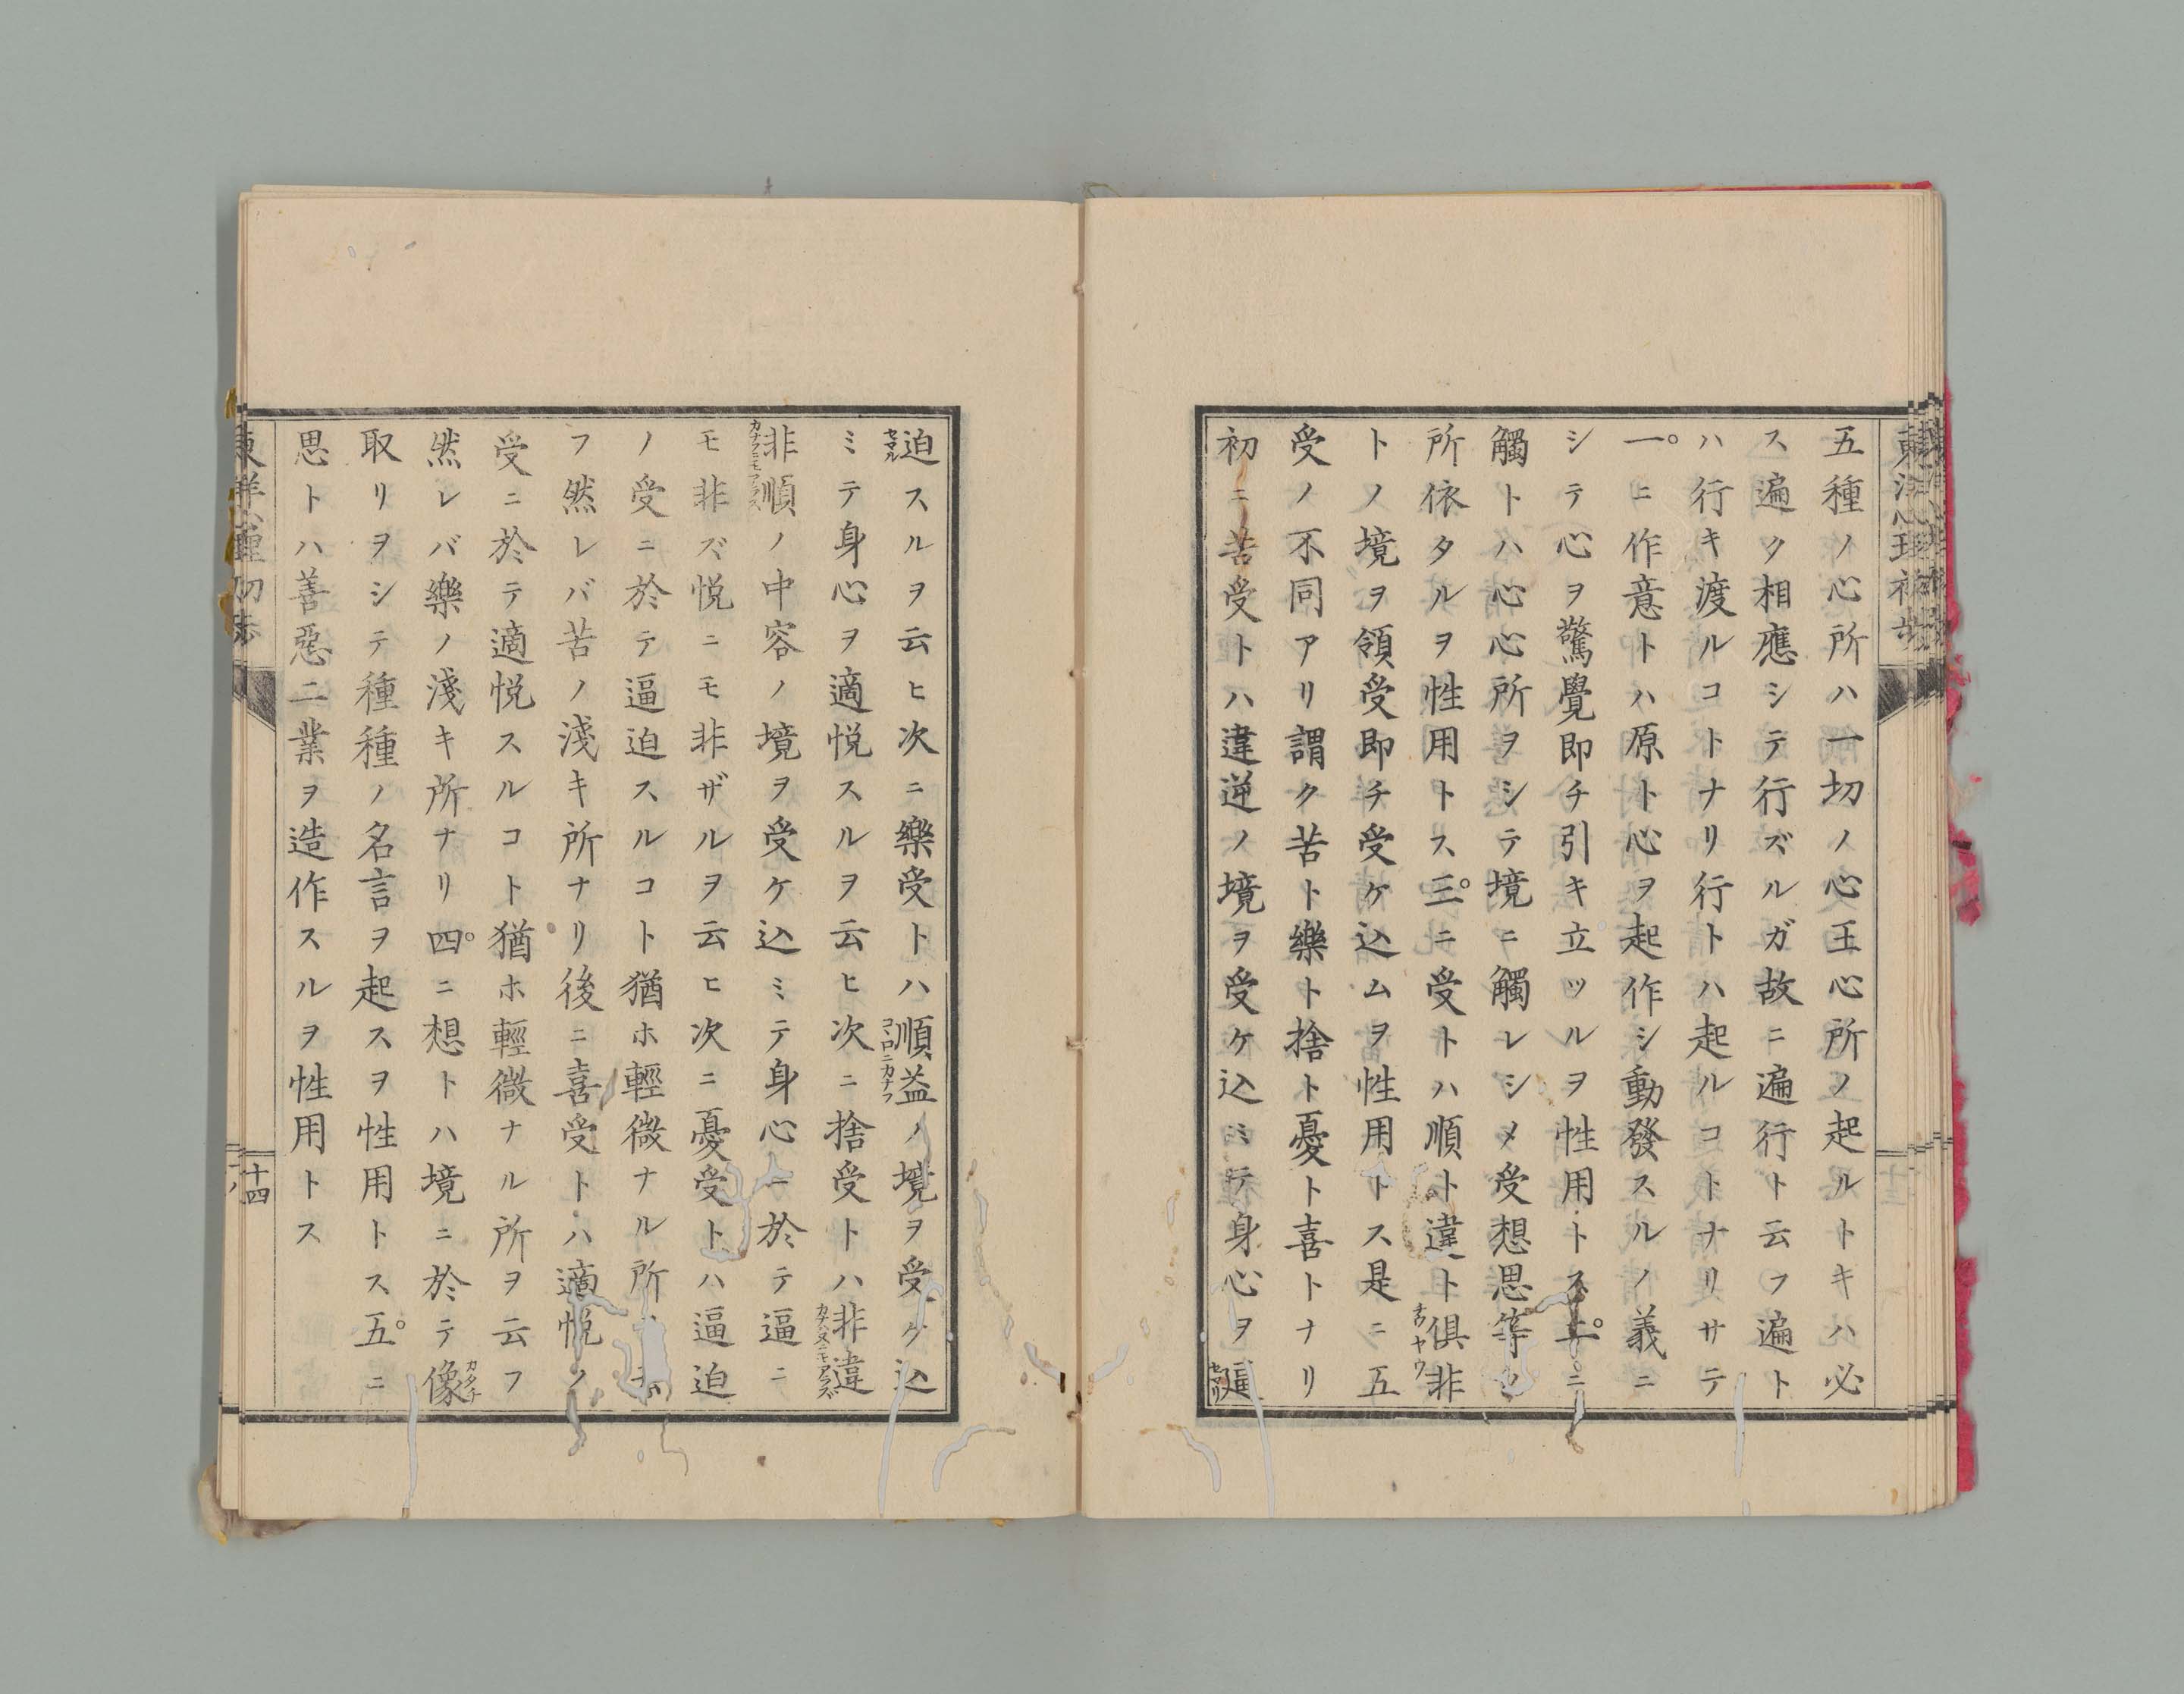 五種ノ心所ハ一切ノ心王心所ノ起ルトキハ必
ス遍ク相應シテ行ズルガ故ニ遍行ト云フ遍ト
ハ行キ渡ルコトナリ行トハ起ルコトナリサテ
一。ニ作意トハ原ト心ヲ起作シ動發スルノ義ニ
シテ心ヲ驚覺即チ引キ立ツルヲ性用トス二。ニ
觸トハ心心所ヲシテ境ニ觸レシメ受想思等ノ
所依タルヲ性用トス三。ニ受トハ順ト違ト俱非
トノ境ヲ領受即チ受ケ込ムヲ性用トス是ニ五
受ノ不同アリ謂ク苦ト樂ト捨ト憂ト喜トナリ
初ニ苦受トハ違逆ノ境ヲ受ケ込ミテ身心ヲ逼
迫スルヲ云ヒ次ニ樂受トハ順益ノ境ヲ受ケ込
ミテ身心ヲ適悦スルヲ云ヒ次ニ捨受トハ非違
非順ノ中容ノ境ヲ受ケ込ミテ身心ニ於テ逼ニ
モ非ズ悦ニモ非ザルヲ云ヒ次ニ憂受トハ逼迫
ノ受ニ於テ逼迫スルコト猶ホ輕微ナル所
フ然レバ苦ノ淺キ所ナリ後ニ喜受トハ適悦ノ
受ニ於テ適悦スルコト猶ホ輕微ナル所ヲ云フ
然レバ樂ノ淺キ所ナリ四。ニ想トハ境ニ於テ像
取リヲシテ種種ノ名言ヲ起スヲ性用トス五。ニ
思トハ善惡二業ヲ造作スルヲ性用トス
十四